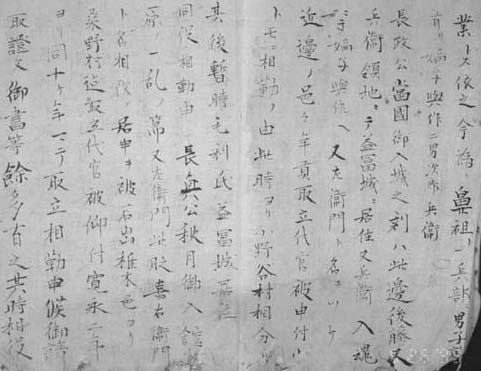 業トス依之今為鼻祖一兵部男子
有リ嫡子與作二男次郎兵衛
長政公當國御入城之刻ハ此邊後藤又
兵衛領地ニテ益冨城ニ居住又兵衛入魂
ニテ嫡子與作ヘ又左衛門ト名ヲツケ
近邊ノ邑々年貢取立代官被申付
トモニ相勤ノ由此時ヨリ小野谷村相分リ
其後暫時毛利氏益冨城居住
同役相勤由長興公秋月御入
一乱ノ節又左衛門此時嘉右衛門
ト名相改居申ヲ被召出椎木邑ヨリ
桑野村迠取立代官被仰付寛永二年
ヨリ同十ケ年マテ取立相勤申候御請
取證文御書等餘多有之其時相役